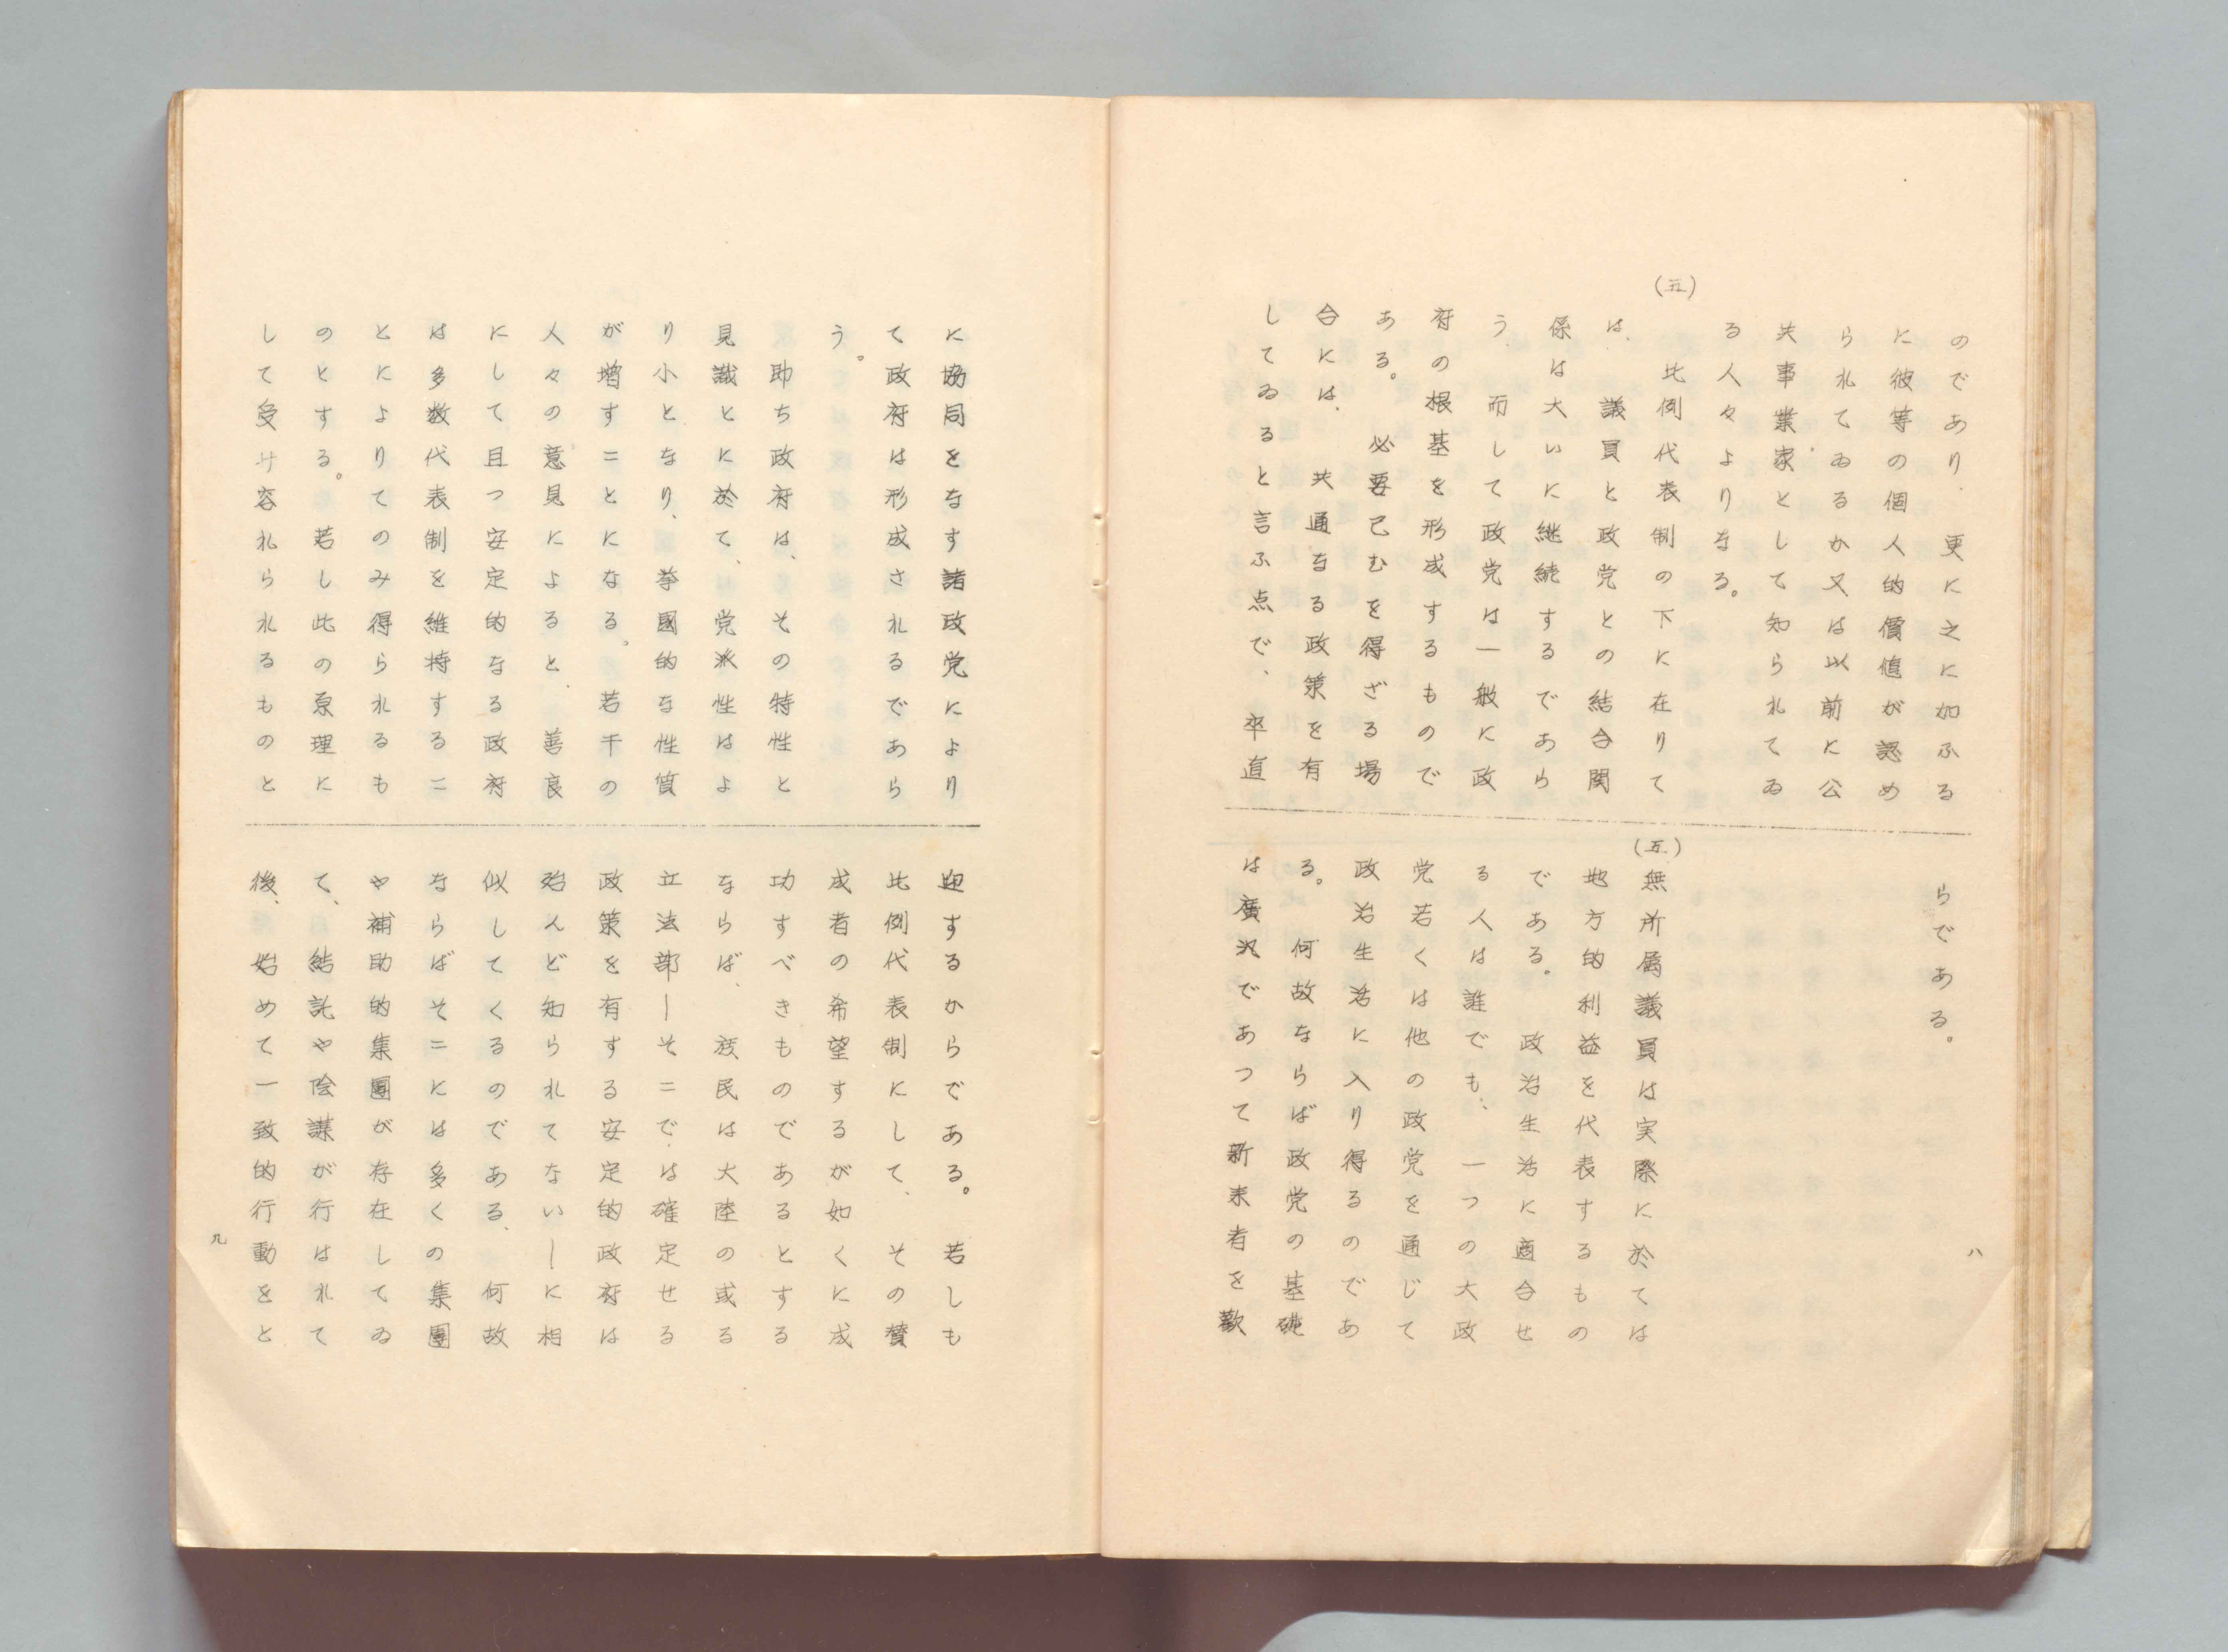 のであり、更に之に加ふる
に彼等の個人的價値が認め
られてゐるか又は以前に公
共事業家として知られてゐ
る人々よりなる。
(五)
比例代表制の下に在りて
は、議員と政党との結合関
係は大いに継続するであら
う、而して政党は一般に政
府の根基を形成するもので
ある。必要已むを得ざる場
合には、共通なる政策を有
してゐると言ふ点で、卒直
らである。
(五)
無所属議員は実際に於ては
地方的利益を代表するもの
である。政治生活に適合せ
る人は誰でも、一つの大政
党若くは他の政党を通じて
政治生活に入り得るのであ
る。何故ならば政党の基礎
は廣汎であつて新来者を歓
八
に協同をなす諸政党により
て政府は形成されるであら
う。
助ち政府は、その特性と
見識とに於て、党派性はよ
り小となり、挙國的な性質
が増すことになる。若干の
人々の意見によると、善良
にして且つ安定的なる政府
は多数代表制を維持するこ
とによりてのみ得られるも
のとする。若し此の原理に
して受サ容れられるものと
迎するからである。若しも
比例代表制にして、その賛
成者の希望するが如くに成
功すべきものであるとする
ならば、族民は大陸の或る
立法部―そこでは確定せる
政策を有する安定的政府は
殆んど知られてない―に相
似してくるのである、何故
ならばそこには多くの集團
や補助的集團が存在してゐ
て、結託や陰謀が行はれて
後、始めて一致的行動をと
九